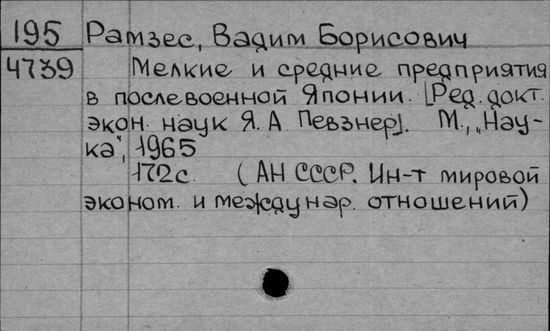 195 Рамзес, Вадим Борисович
4739 Мелкие и средние предприятия
в послевоенной Японии. [Ред. докт.
экон. наук Я. А. Певзнер]. М., „Нау-
ка", 1965
172 с. (АН СССР. Ин-т мировой
эконом. и междунар. отношений)